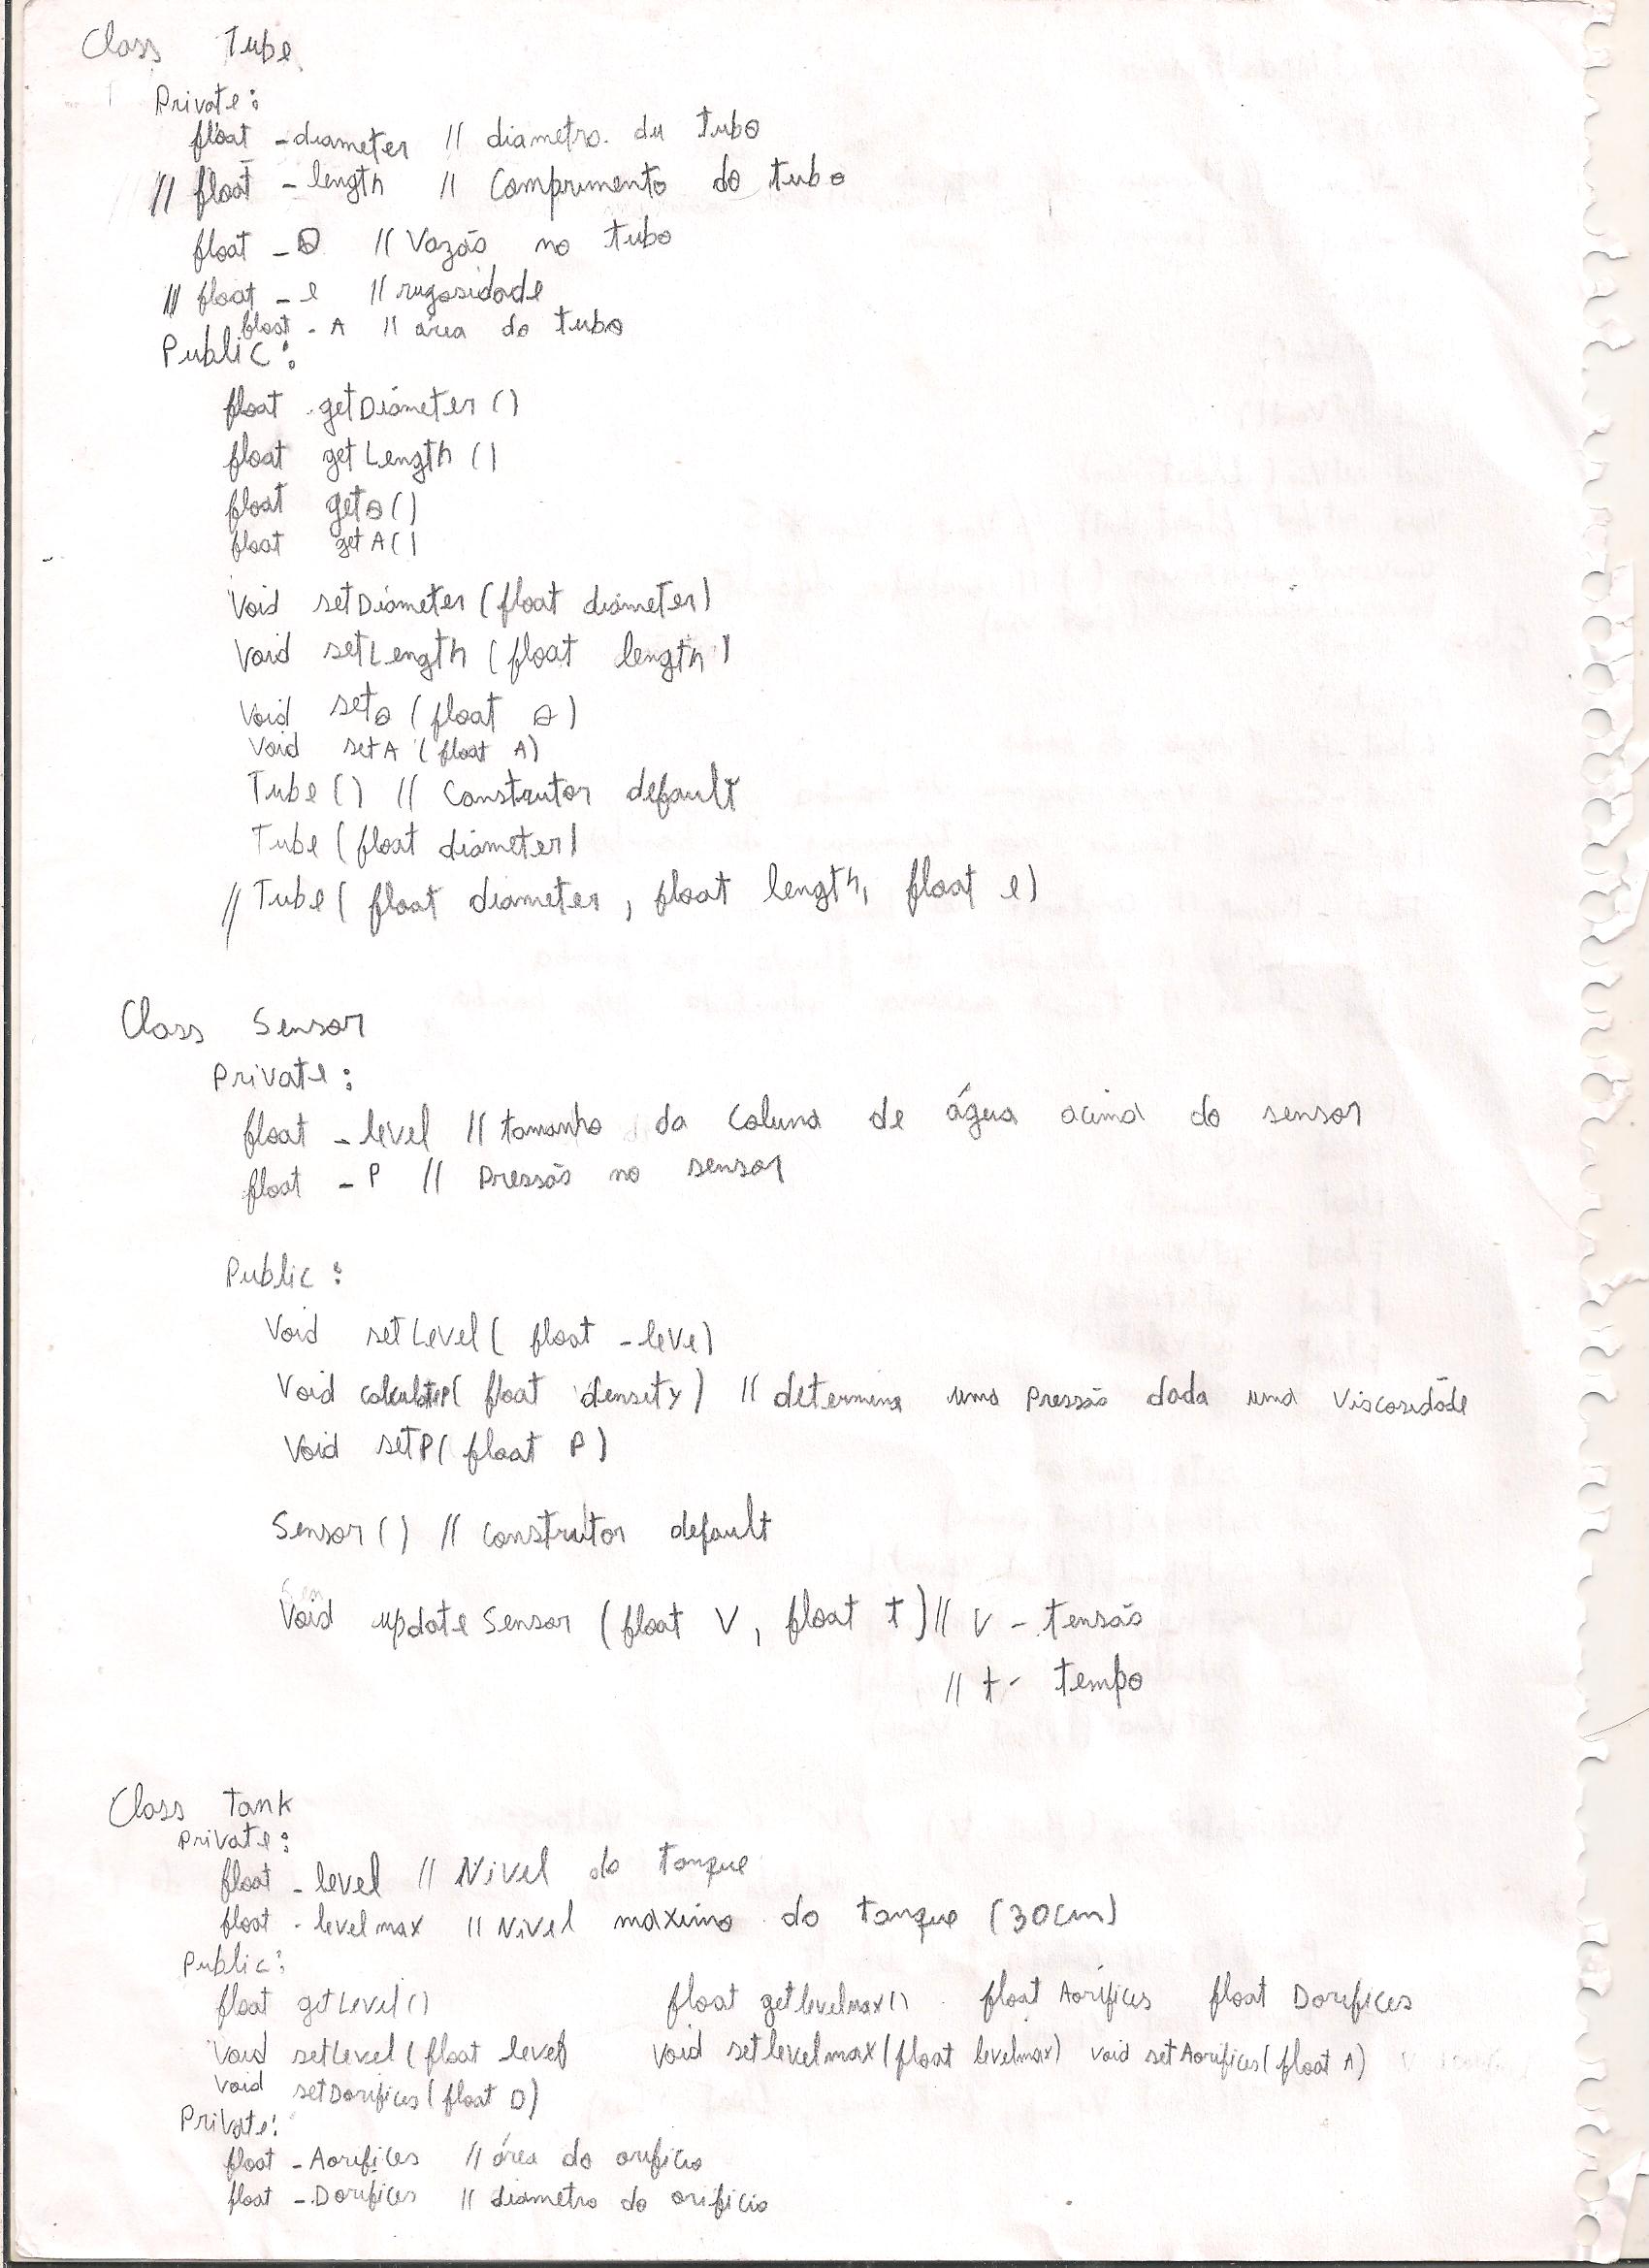 Class Tube
Private:
float _diameter // diametro du tubo
// float _length // Comprimento do tubo
float _Q // Vazão no tubo
// float _e // rugosidade
float _A // área do tubo
Public:
float getDiameter()
float getLength()
float getQ()
float getA()
Void setDiameter(float diameter)
Void setLength(float length)
Void setQ(float Q)
Void setA(float A)
Tube() // Construtor default
Tube(float diameter)
// Tube(float diameter, float length, float e)
Class Sensor
Private:
float _level // tamanho da coluna de água acima do sensor
float _P // Pressão no sensor
Public:
Void setLevel(float _leve)
Void calculateP(float density) // determina uma Pressão dada uma Viscosidade
Void setP(float P)
Sensor() // construtor default
Void updateSensor(float V, float t) // V - tensão
// t - tempo
Class Tank
Private:
float _level // Nivel do tanque
float _levelmax // Nivel máximo do tanque (30cm)
Public:
float getLevel() float getlevelmax() float Aorifices float Dorifices
Void setLevel(float level) void setlevelmax(float levelmax) void setAorifices(float A)
void setDorifices(float D)
Private:
float _Aorifices // área do orificio
float _Dorifices // diametro do orificio